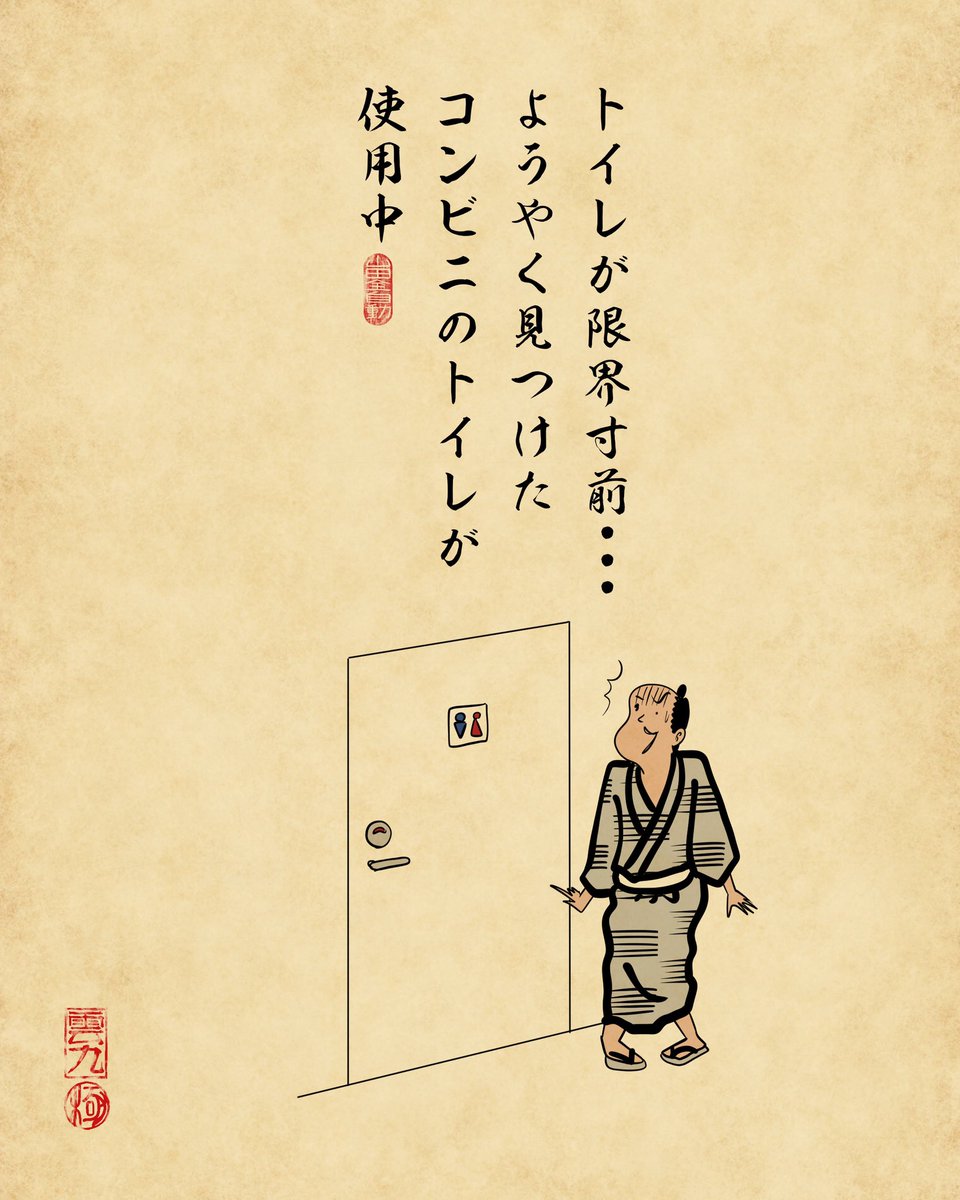 トイレが限界寸前・・・
ようやく見つけた
コンビニのトイレが
使用中